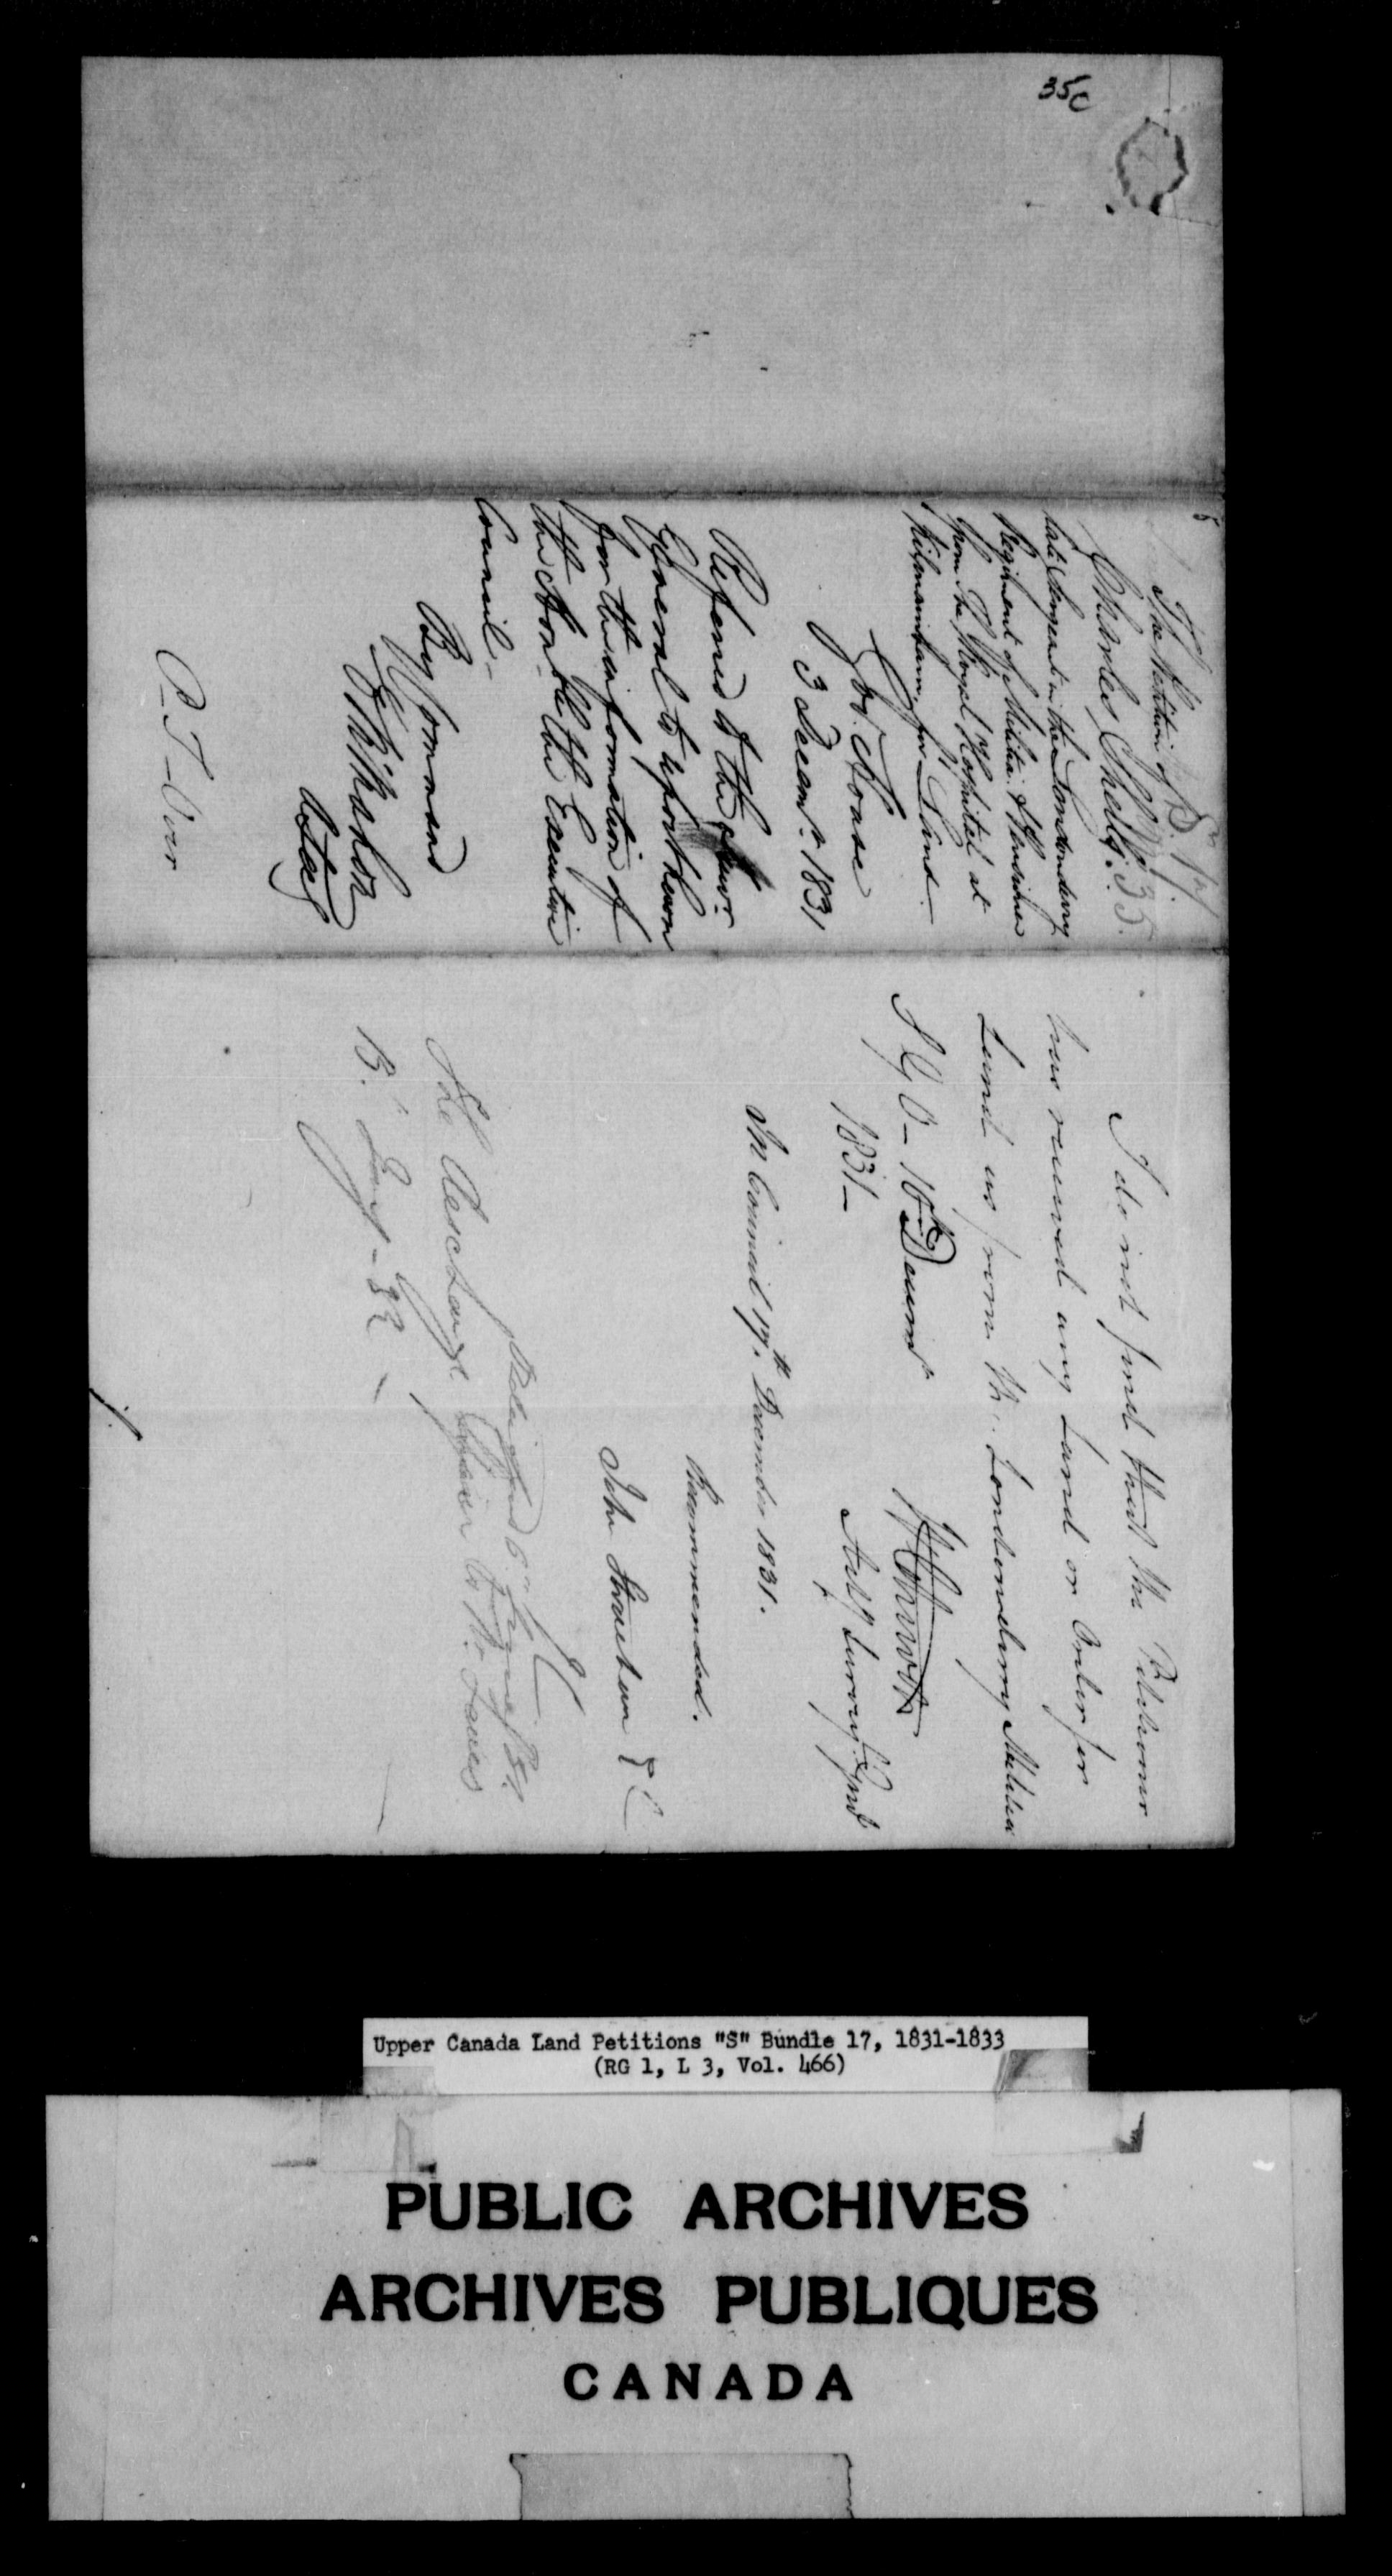 35c
S. 17/35.
The Petition of
Charles Sheil,
late Sergeant in the Londonderry
Regiment of Militia & Pensioner
from the Royal Hospital at
Kilmainham, for Land.—
Gov.t House
3 Decemr. 1831
Referred to the Survr.
General to report hereon
for the information of
the Honble the Executive
Council.—
By Command
Actg
P. T. Over
I do not find that the Petitioner
has received any Land or Order for
Land as from the Londonderry Militia
S G O — 16th Decemr.
1831—
Actg Survey Genl
In Council 17th. December 1831.
Recommended.
John Strachan P C
The discharge
to Mr.
Upper Canada Land Petitions "S" Bundle 17, 1831-1833
(RG 1, L 3, Vol. 466)
PUBLIC ARCHIVES
ARCHIVES PUBLIQUES
CANADA